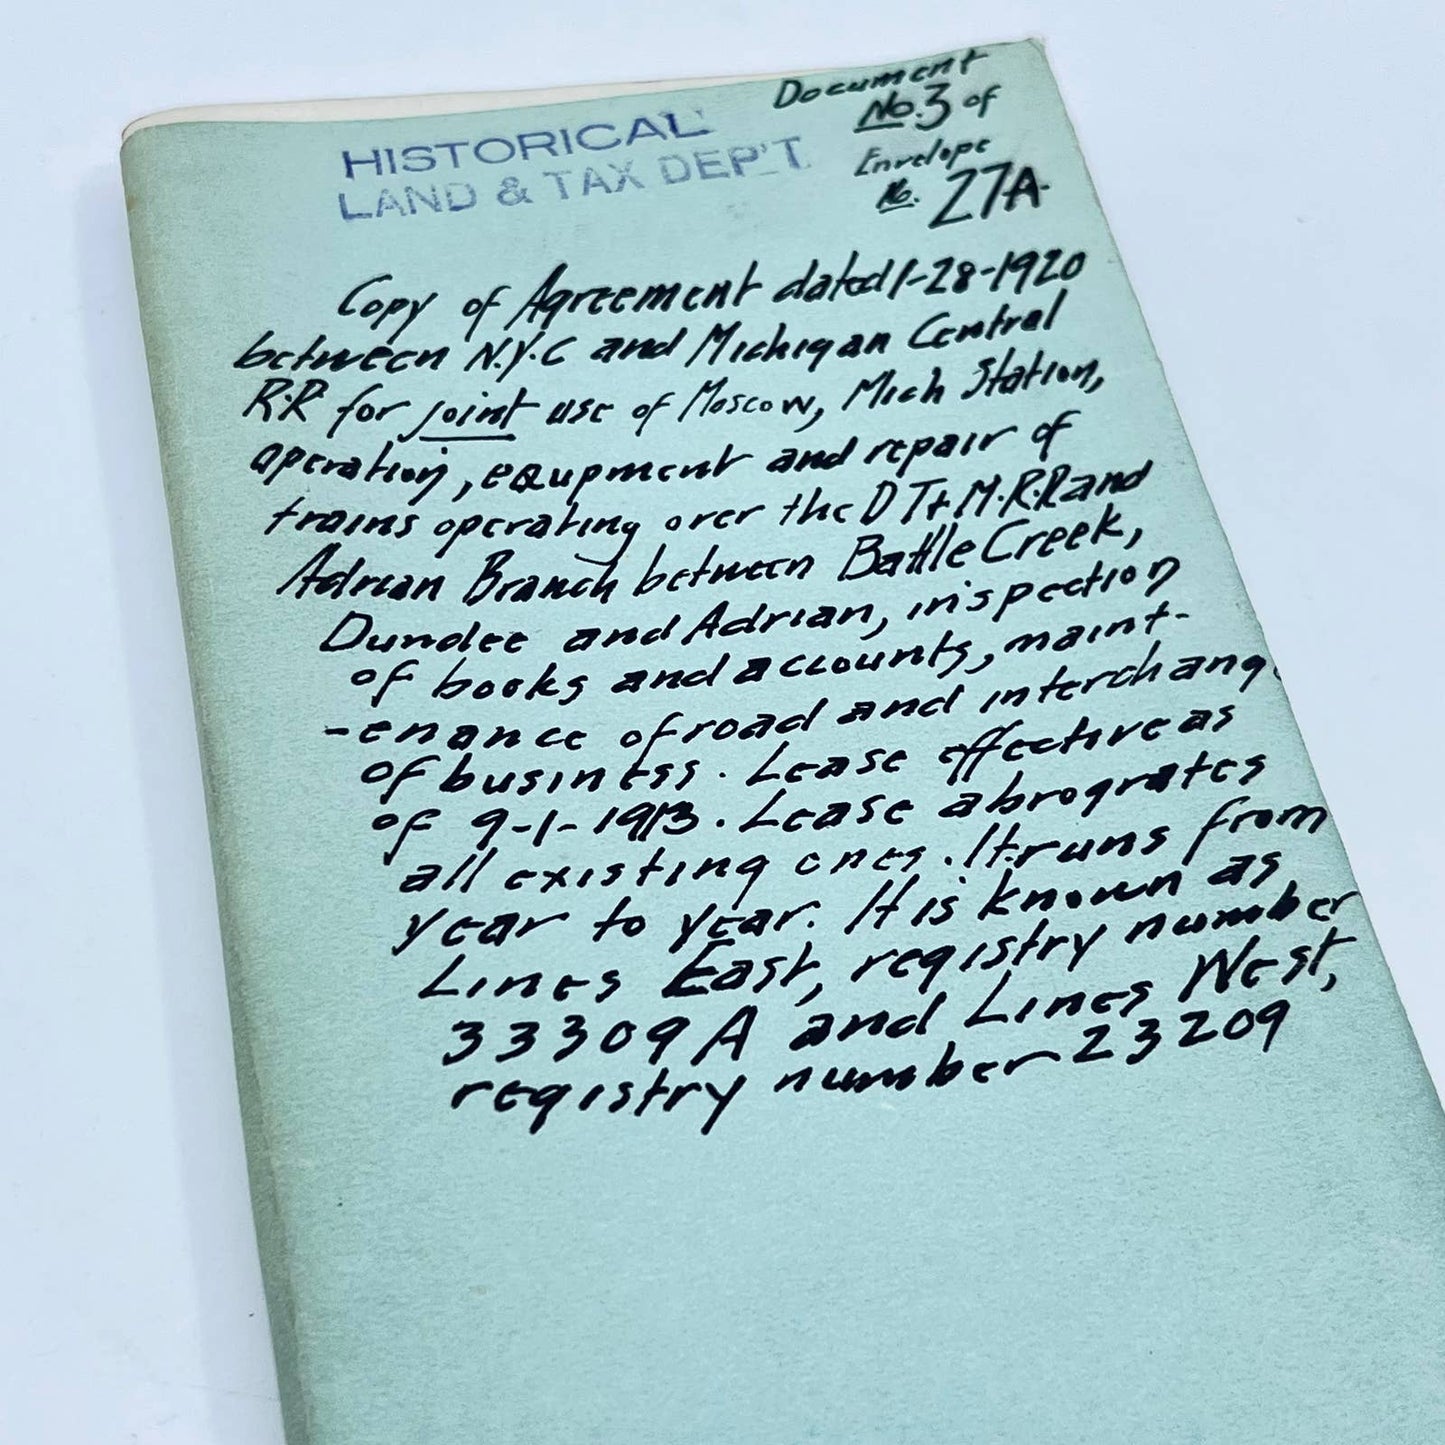 HISTORICAL
LAND & TAX DEP'T.
Document
No. 3 of
Envelope
No. 27A
Copy of Agreement dated 1-28-1920
between N.Y.C and Michigan Central
R.R for joint use of Moscow, Mich Station,
operation, equpment and repair of
trains operating over the D T & M.R.R and
Adrian Branch between Battle Creek,
Dundee and Adrian, inspection
of books and accounts, maint-
-enance of road and interchange
of business. Lease effective as
of 9-1-1913. Lease abrogrates
all existing ones. It runs from
year to year. It is known as
Lines East, registry number
33309A and Lines West,
registry number 23209